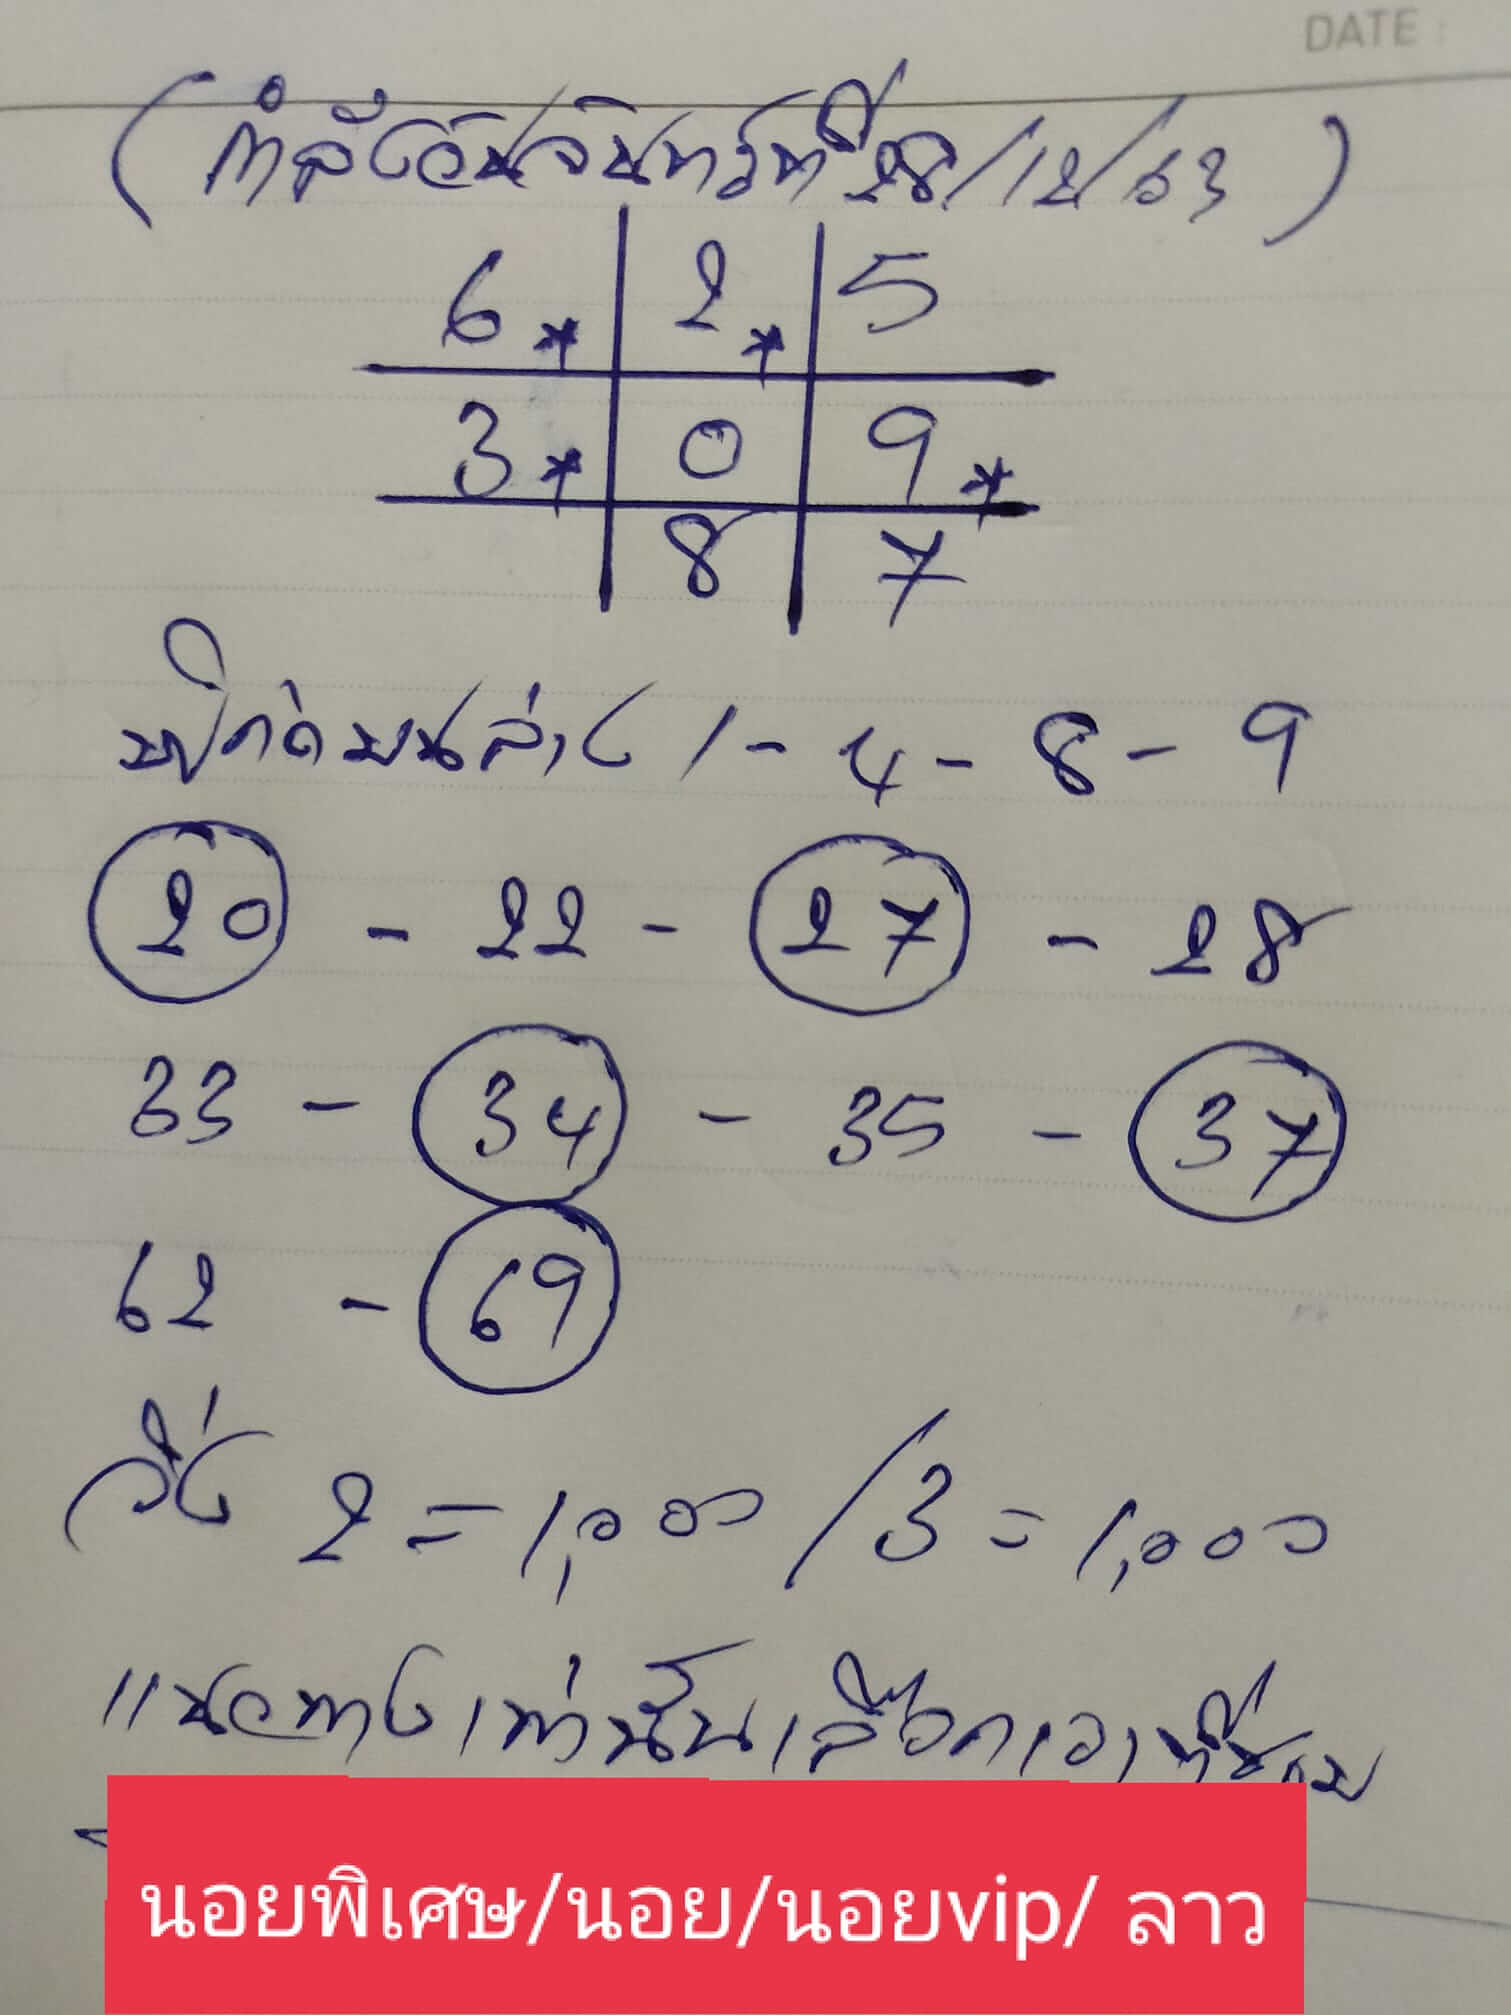 DATE :
(กำลังวันจันทร์ที่ 28/12/63)
6* 2* 5
3* 0 9*
8 7
พิกัดบนล่าง 1-4-8-9
20 - 22 - 27 - 28
33 - 34 - 35 - 37
62 - 69
วิ่ง 2 = 1,000 / 3 = 1,000
แนวทางเท่านั้นเลือกเอาที่ชอบ
นอยพิเศษ/นอย/นอยvip/ ลาว